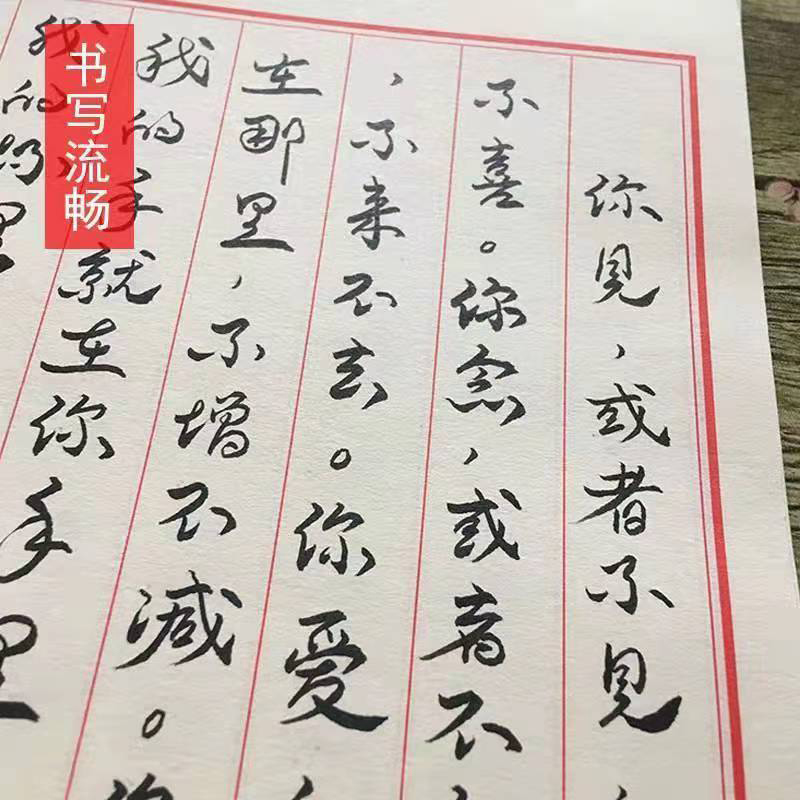 书写流畅
你見，或者不見，
不喜。你念，或者不
，不来不去。你爱
在那里，不增不減。
我的手就在你手里
我的